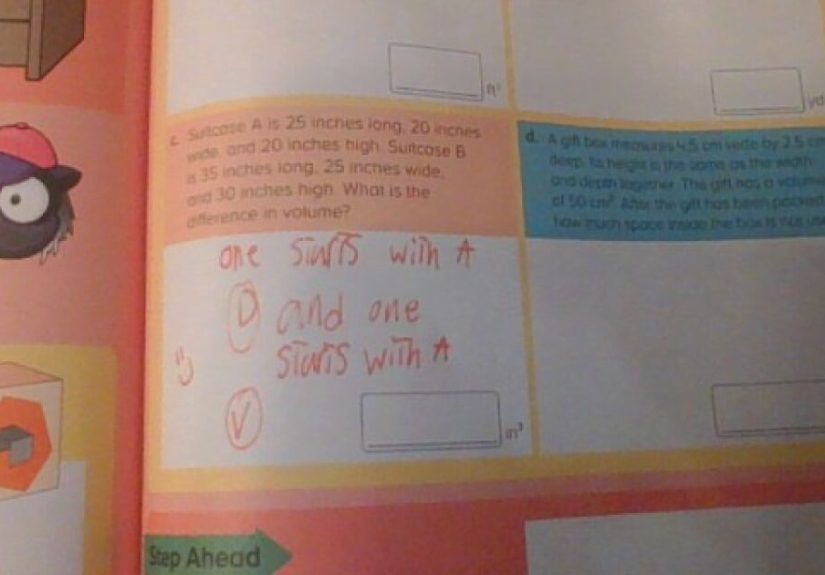 ft³
yd
c. Suitcase A is 25 inches long, 20 inches
wide, and 20 inches high. Suitcase B
is 35 inches long, 25 inches wide,
and 30 inches high. What is the
difference in volume?
one starts with A
D and one
starts with A
V
in³
d. A gift box measures 4.5 cm wide by 2.5 cm
deep. Its height is the same as the width
and depth together. The gift has a volume
of 50 cm³. After the gift has been packed
how much space inside the box is not us
Step Ahead